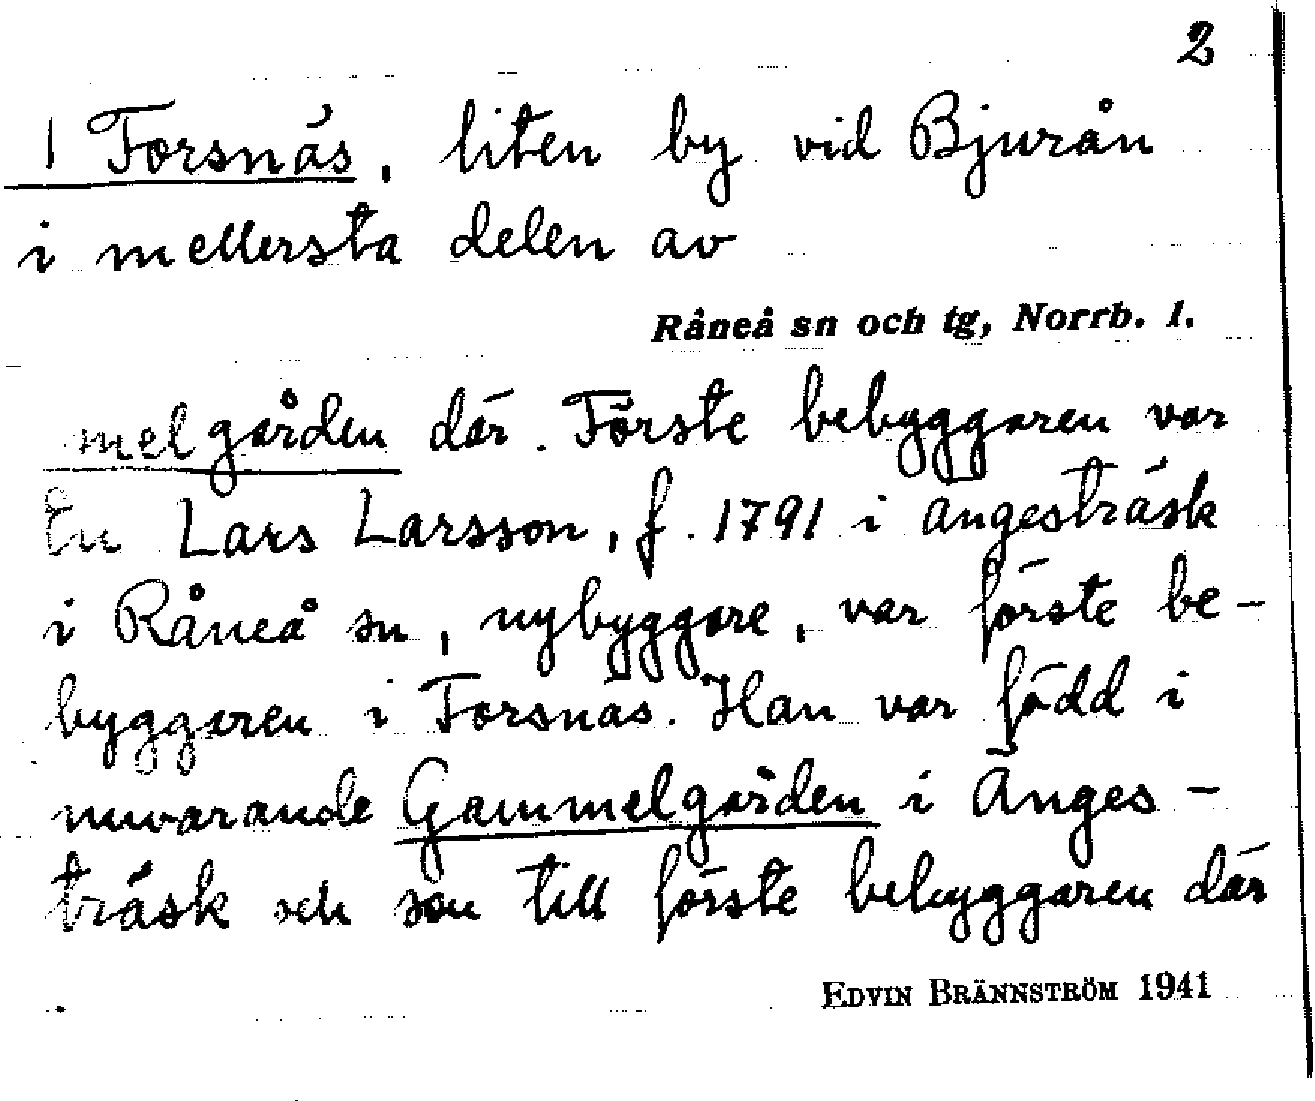 2
1 Forsnäs, liten by vid Bjurån
i mellersta delen av
Råneå sn och tg, Norrb. l.
melgården där. Förste bebyggaren var
en Lars Larsson, f. 1791 i Ängesträsk
i Råneå sn, nybyggare, var förste be-
byggaren i Forsnäs. Han var född i
nuvarande Gammelgården i Änges-
träsk och son till förste bebyggaren där
EDVIN BRÄNNSTRÖM 1941